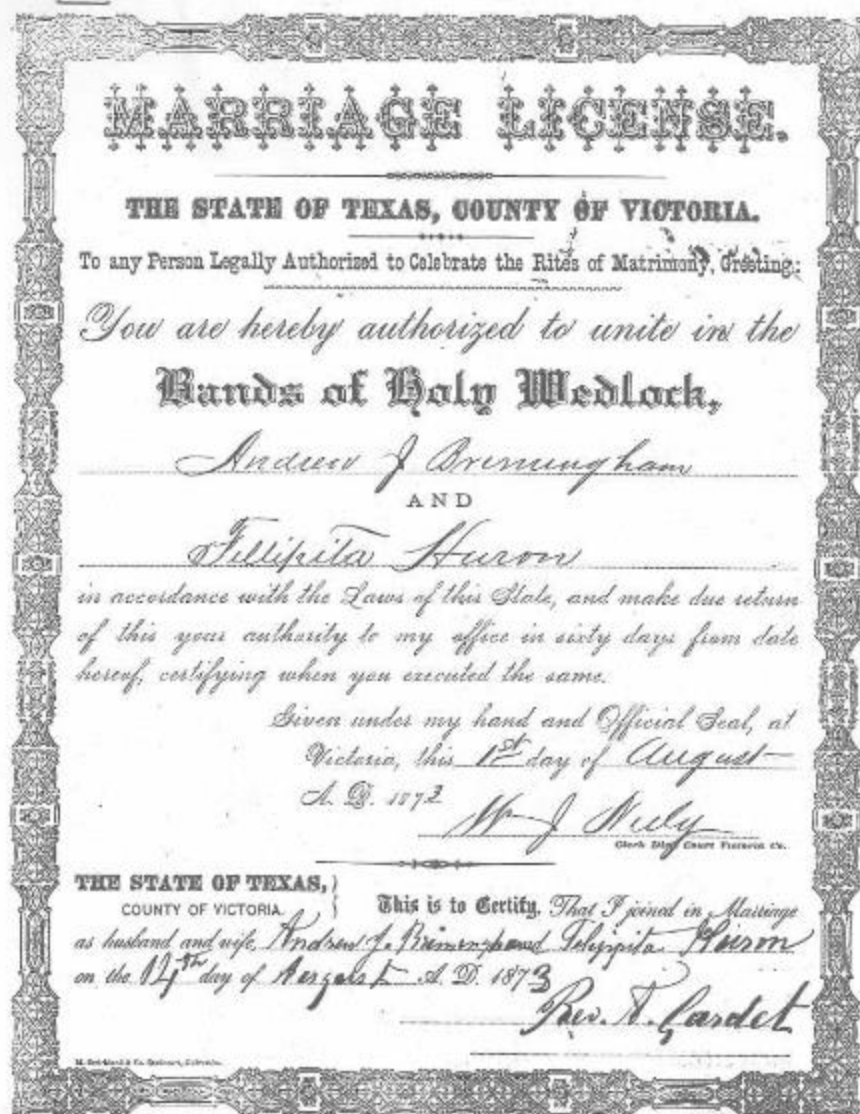 MARRIAGE LICENSE.
THE STATE OF TEXAS, COUNTY OF VICTORIA.
To any Person Legally Authorized to Celebrate the Rites of Matrimony, Greeting:
You are hereby authorized to unite in the
Bands of Holy Wedlock,
Andrew J Brimingham
AND
Fillipita Huron
in accordance with the Laws of this State, and make due return
of this your authority to my office in sixty days from date
hereof, certifying when you executed the same.
Given under my hand and Official Seal, at
Victoria, this 1st day of August
A. D. 1873
Wm J Neely
Clerk Dist. Court Victoria Co.
THE STATE OF TEXAS,
COUNTY OF VICTORIA.
This is to Certify, That I joined in Marriage
as husband and wife, Andrew J. and Huron
on the 14th day of August A. D. 1873
Rev. A. Gardet